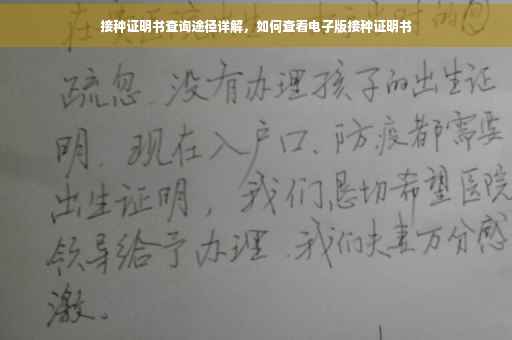 接种证明书查询途径详解，如何查看电子版接种证明书
疏忽、没有办理孩子的出生证
明、现在入户口、防疫都需要
出生证明，我们恳切希望医院
领导给予办理、我们夫妻万分感
激。